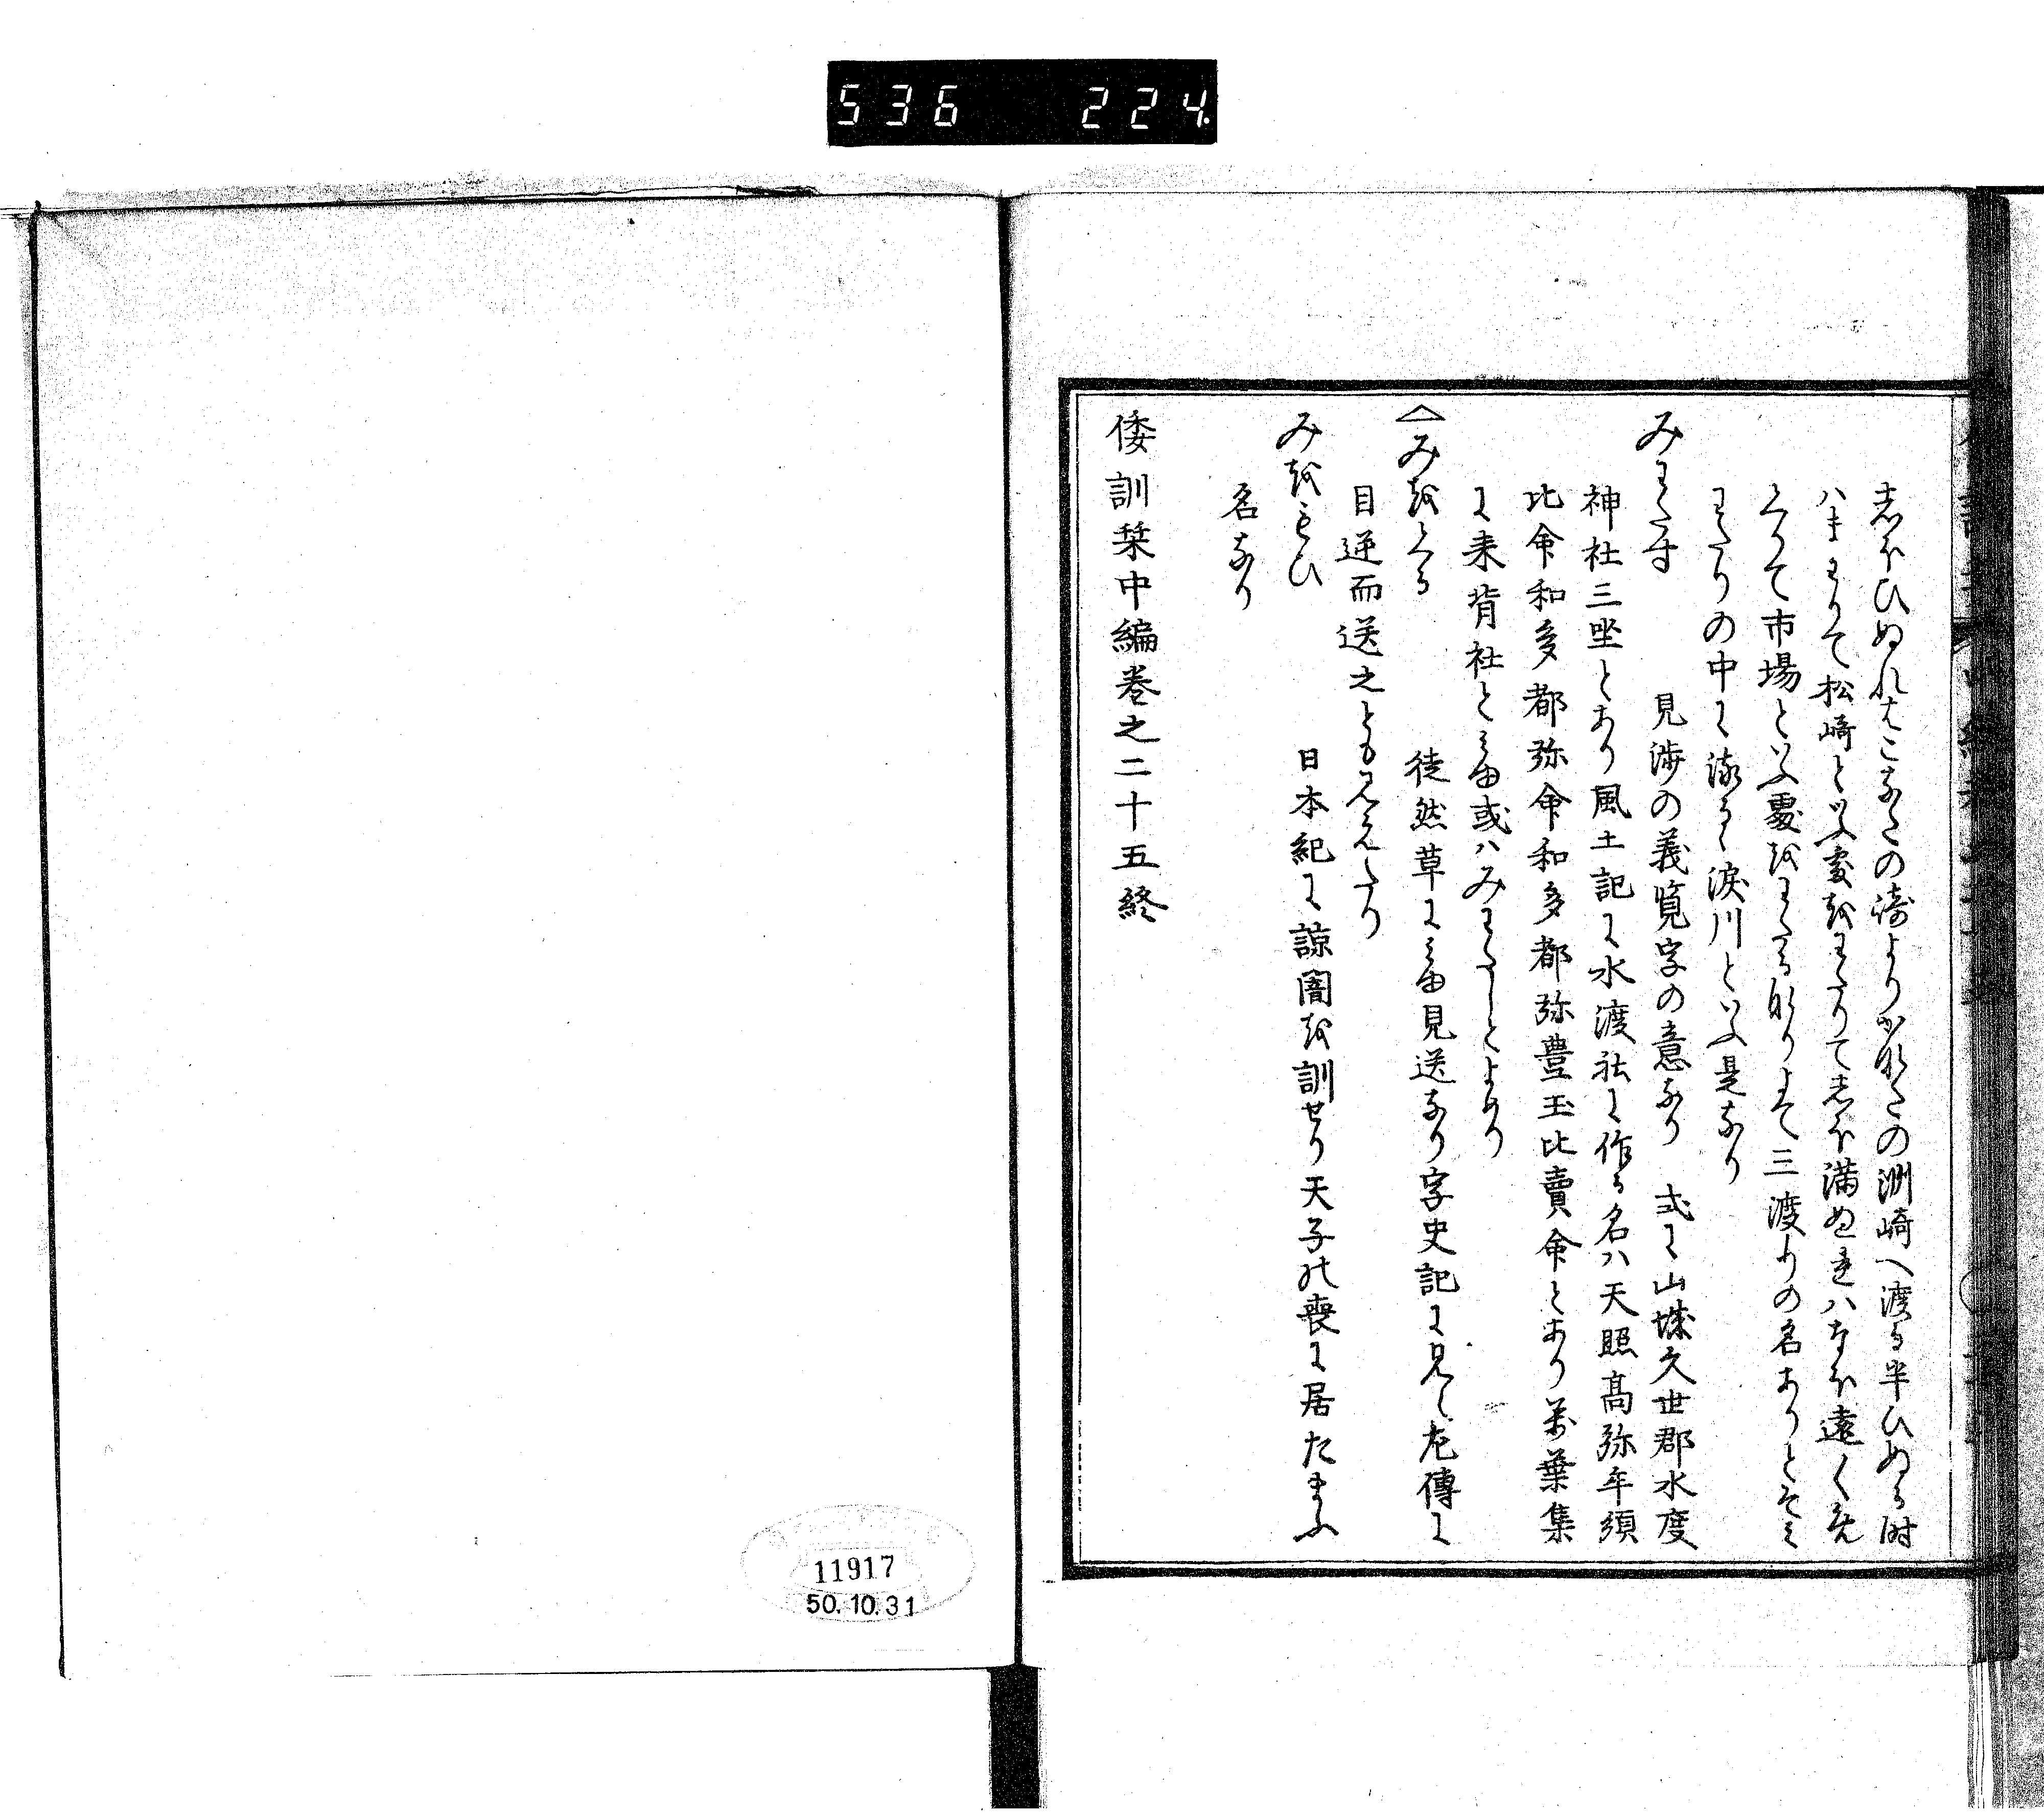 536 224.
志ほひぬれはこなたの崎よりかなたの洲崎へ渡る半ひぬる時
ハまわりて松崎といふ処をわたりて志ほ満ぬれハなほ遠く
くりて市場といふ処をわたる所りよて三渡りの名ありとそみ
わたりの中に流るゝ涙川といふ是なり
みわたす　見渉の義覧字の意なり　式に山城久世郡水度
神社三坐とあり風土記に水渡社に作る名ハ天照高弥牟須
比命和多都弥命和多都弥豊玉比賣命とあり萬葉集
に来背社とみゆ或ハみわたしとよめり
△みをくる　徒然草にみゆ見送なり字史記に見ゝ左傳に
目逆而送之とも見えたり
みをもひ　日本紀に諒闇を訓せり天子の喪に居たまふ
名なり
倭訓栞中編巻之二十五終
11917
50.10.31